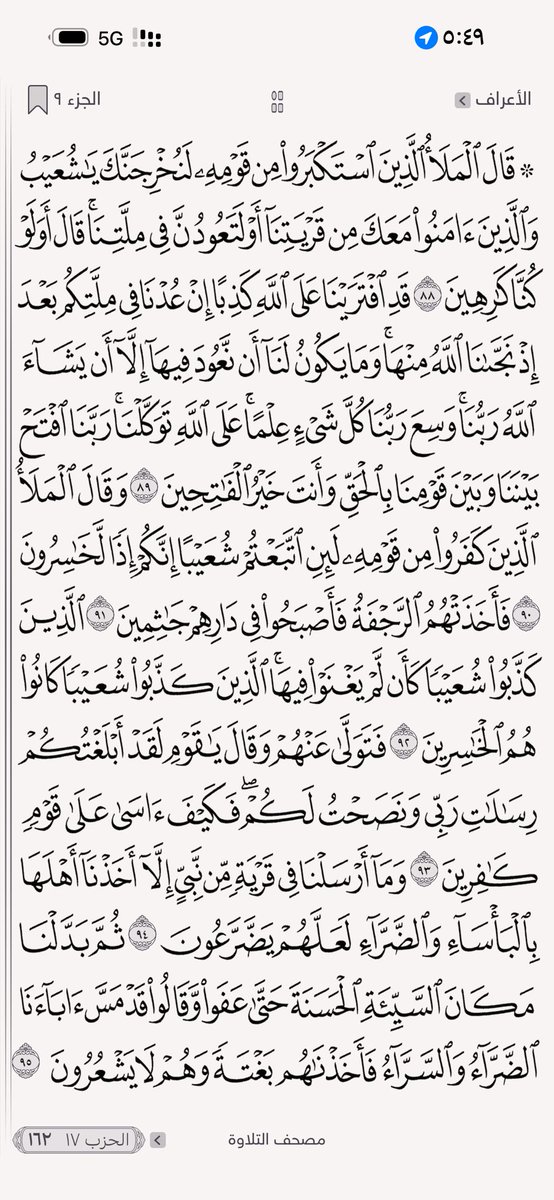 ٥:٤٩ 5G
الأعراف الجزء ٩
۞ قَالَ ٱلۡمَلَأُ ٱلَّذِينَ ٱسۡتَكۡبَرُواْ مِن قَوۡمِهِۦ لَنُخۡرِجَنَّكَ يَٰشُعَيۡبُ
وَٱلَّذِينَ ءَامَنُواْ مَعَكَ مِن قَرۡيَتِنَآ أَوۡ لَتَعُودُنَّ فِي مِلَّتِنَاۚ قَالَ أَوَلَوۡ
كُنَّا كَٰرِهِينَ ٨٨ قَدِ ٱفۡتَرَيۡنَا عَلَى ٱللَّهِ كَذِبًا إِنۡ عُدۡنَا فِي مِلَّتِكُم بَعۡدَ
إِذۡ نَجَّىٰنَا ٱللَّهُ مِنۡهَاۚ وَمَا يَكُونُ لَنَآ أَن نَّعُودَ فِيهَآ إِلَّآ أَن يَشَآءَ
ٱللَّهُ رَبُّنَاۚ وَسِعَ رَبُّنَا كُلَّ شَيۡءٍ عِلۡمًاۚ عَلَى ٱللَّهِ تَوَكَّلۡنَاۚ رَبَّنَا ٱفۡتَحۡ
بَيۡنَنَا وَبَيۡنَ قَوۡمِنَا بِٱلۡحَقِّ وَأَنتَ خَيۡرُ ٱلۡفَٰتِحِينَ ٨٩ وَقَالَ ٱلۡمَلَأُ
ٱلَّذِينَ كَفَرُواْ مِن قَوۡمِهِۦ لَئِنِ ٱتَّبَعۡتُمۡ شُعَيۡبًا إِنَّكُمۡ إِذٗا لَّخَٰسِرُونَ
٩٠ فَأَخَذَتۡهُمُ ٱلرَّجۡفَةُ فَأَصۡبَحُواْ فِي دَارِهِمۡ جَٰثِمِينَ ٩١ ٱلَّذِينَ
كَذَّبُواْ شُعَيۡبٗا كَأَن لَّمۡ يَغۡنَوۡاْ فِيهَاۚ ٱلَّذِينَ كَذَّبُواْ شُعَيۡبٗا كَانُواْ
هُمُ ٱلۡخَٰسِرِينَ ٩٢ فَتَوَلَّىٰ عَنۡهُمۡ وَقَالَ يَٰقَوۡمِ لَقَدۡ أَبۡلَغۡتُكُمۡ
رِسَٰلَٰتِ رَبِّي وَنَصَحۡتُ لَكُمۡۖ فَكَيۡفَ ءَاسَىٰ عَلَىٰ قَوۡمٖ
كَٰفِرِينَ ٩٣ وَمَآ أَرۡسَلۡنَا فِي قَرۡيَةٖ مِّن نَّبِيٍّ إِلَّآ أَخَذۡنَآ أَهۡلَهَا
بِٱلۡبَأۡسَآءِ وَٱلضَّرَّآءِ لَعَلَّهُمۡ يَضَّرَّعُونَ ٩٤ ثُمَّ بَدَّلۡنَا
مَكَانَ ٱلسَّيِّئَةِ ٱلۡحَسَنَةَ حَتَّىٰ عَفَواْ وَّقَالُواْ قَدۡ مَسَّ ءَابَآءَنَا
ٱلضَّرَّآءُ وَٱلسَّرَّآءُ فَأَخَذۡنَٰهُم بَغۡتَةٗ وَهُمۡ لَا يَشۡعُرُونَ ٩٥
مصحف التلاوة الحزب ١٧ ١٦٢